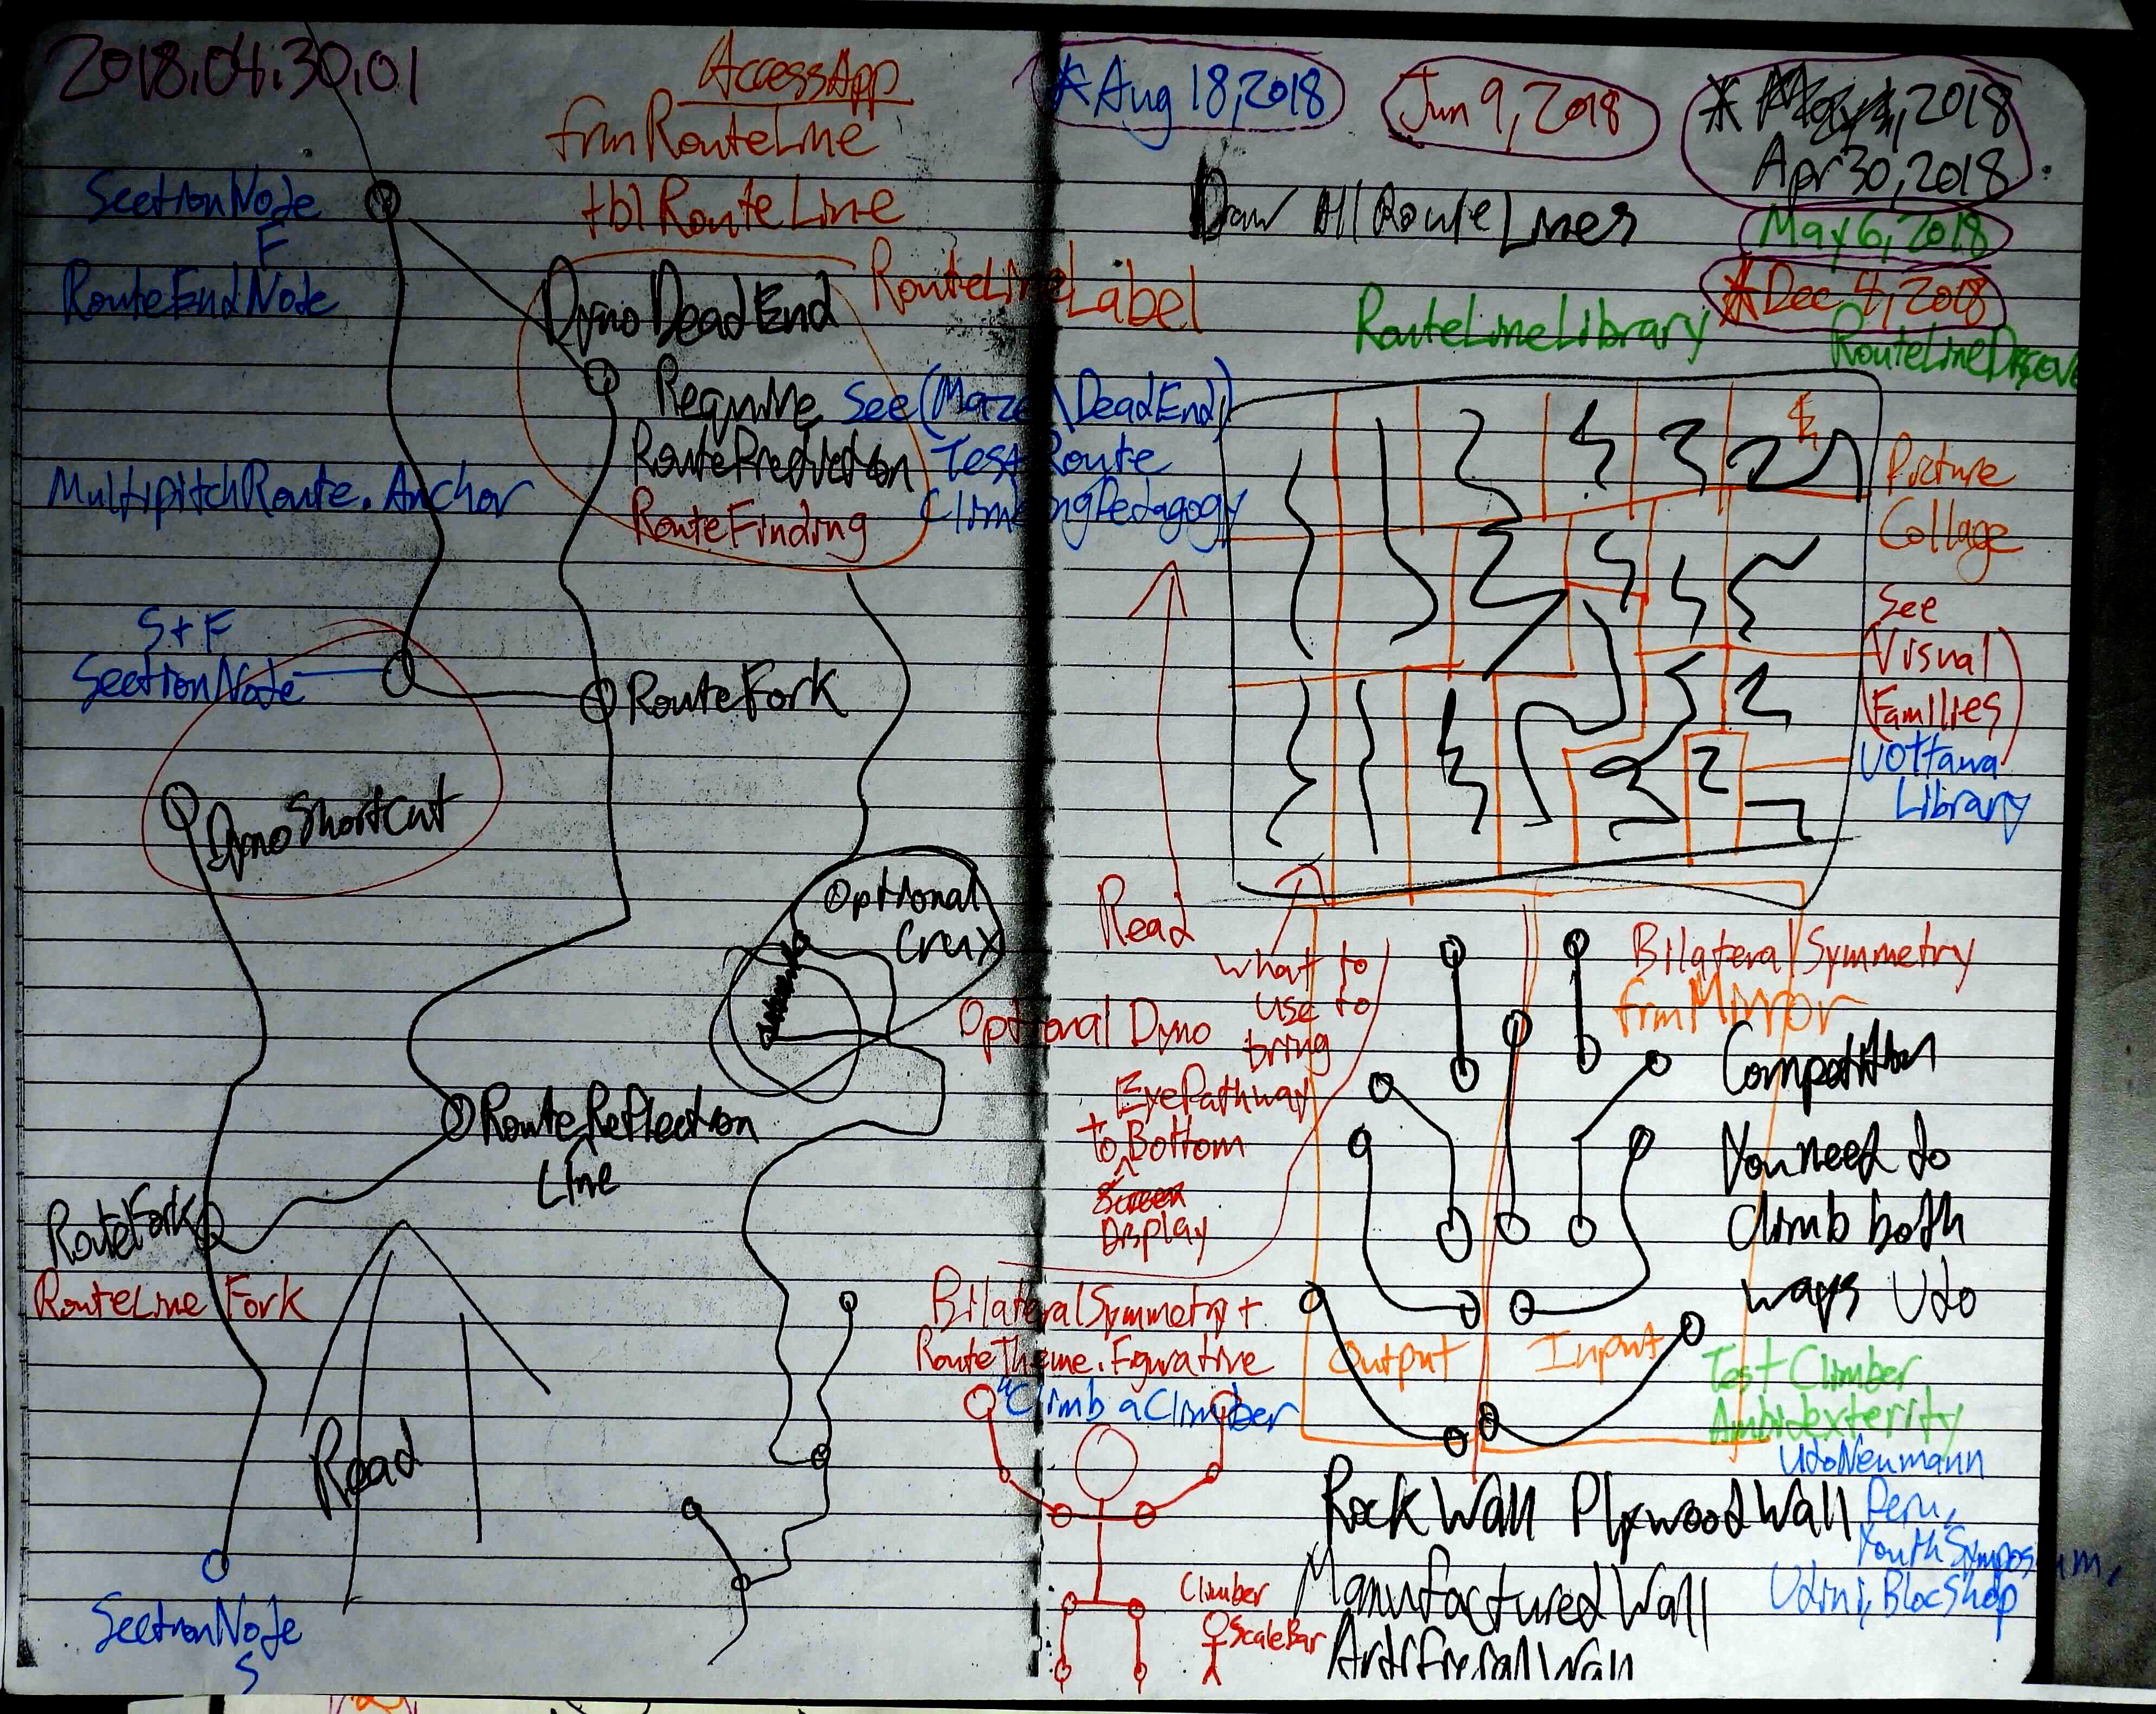 2018.04.30.01
AccessApp
frmRouteLine
tblRouteLine
RouteLineLabel
SectionNode
F
RouteEndNode
DynoDeadEnd
Require
RoutePrediction
RouteFinding
See (Maze\DeadEnd)
Test Route
ClimbingPedagogy
MultipitchRoute.Anchor
S+F
SectionNode
RouteFork
DynoShortCut
Optional
Crux
Optional Dyno
RouteReflection
Line
RouteFork
RouteLine Fork
Read
SectionNode
S
*Aug 18, 2018
Jun 9, 2018
Apr 30, 2018
May 6, 2018
*Dec 4, 2018
Draw All Route Lines
RouteLineLibrary
Picture
Collage
See
Visual
Families
UOttawa
Library
Read
what to
use to
bring
EyePathway
to Bottom
Screen
Display
BilateralSymmetry
frmMirror
Competition
You need to
climb both
ways Udo
Output Input
Test Climber
Ambidexterity
UdoNeumann
Peru,
YouthSymposium,
Udini, BlocShop
BilateralSymmetry +
RouteTheme.Figurative
"Climb a Climber
Climber
ScaleBar
Rock Wall PlywoodWall
ManufacturedWall
ArtificialWall